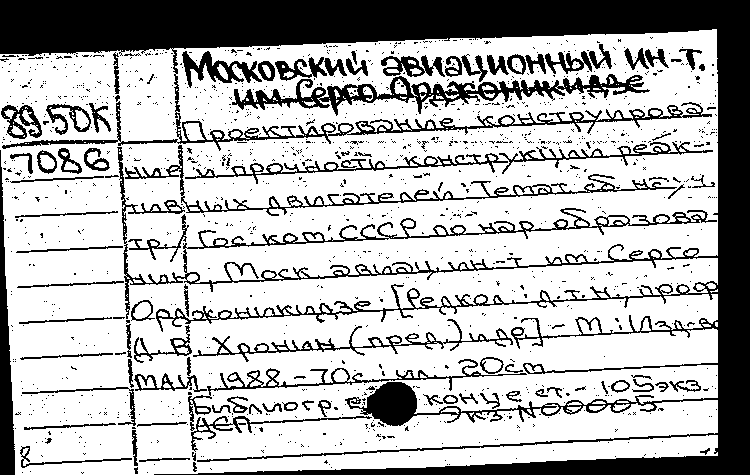 Московский авиационный ин-т.
им. Серго Орджоникидзе
89-50К
7086
Проектирование, конструирова-
ние и прочность конструкции реак-
тивных двигателей: Темат. сб. науч.
тр. / Гос. ком. СССР по нар. образова-
нию, Моск. авиац. ин-т им. Серго
Орджоникидзе; [Редкол.: д.т.н., проф
Д. В. Хронин (пред.) и др.] - М.: Изд-во
МАИ, 1988. - 70с.: ил.; 20см
Библиогр. в конце ст. - 105экз.
ДСП. Экз. N00005.
8